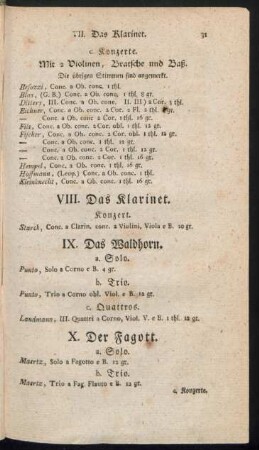 VII. Das Klarinet. 31
c. Konzerte.
Mit 2 Violinen, Bratsche und Baß.
Die übrigen Stimmen sind angemerkt.
Besozzi, Conc. a Ob. conc. 1 thl.
Blas, (G. B.) Conc. a Ob. conc. 1 thl. 8 gr.
Ditters, III. Conc. a Ob. conc. II. III) 2 Cor. 3 thl.
Eichner, Conc. a Ob. conc. 2 Cor. 2 Fl. 2 thl.
— Conc. a Ob. conc. 2 Cor. 1 thl. 16 gr.
Fils, Conc. a Ob. conc. 2 Cor. obl. 1 thl. 12 gr.
Fischer, Conc. a Ob. conc. 2 Cor. 1 thl. 12 gr.
— Conc. a Ob. conc. 1 thl. 12 gr.
— Conc. a Ob. conc. 2 Cor. 1 thl. 12 gr.
— Conc. a Ob. conc. 2 Cor. obl. 1 thl. 16 gr.
Hempel, Conc. a Ob. conc. 1 thl. 16 gr.
Hoffmann, (Leop.) Conc. a Ob. conc. 1 thl. 16 gr.
Conc. a Ob. conc. 1 thl. 16 gr.
VIII. Das Klarinet.
Konzert.
Starck, Conc. a Clarin. conc. 2 Violini, Viola e B. 20 gr.
IX. Das Waldhorn.
a. Solo.
Punto, Solo a Corno e B. 4 gr.
b. Trio.
Punto, Trio a Corno obl. Viol. e B. 12 gr.
c. Quattros.
Landmann, III. Quatri a Corno, Viol. V. e B. 1 thl. 12 gr.
X. Der Fagott.
a. Solo.
Maertz, Solo a Fagotto e B. 12 gr.
b. Trio.
Maertz, Trio a Fag. Flauto e B. 12 gr.
c. Konzerte.